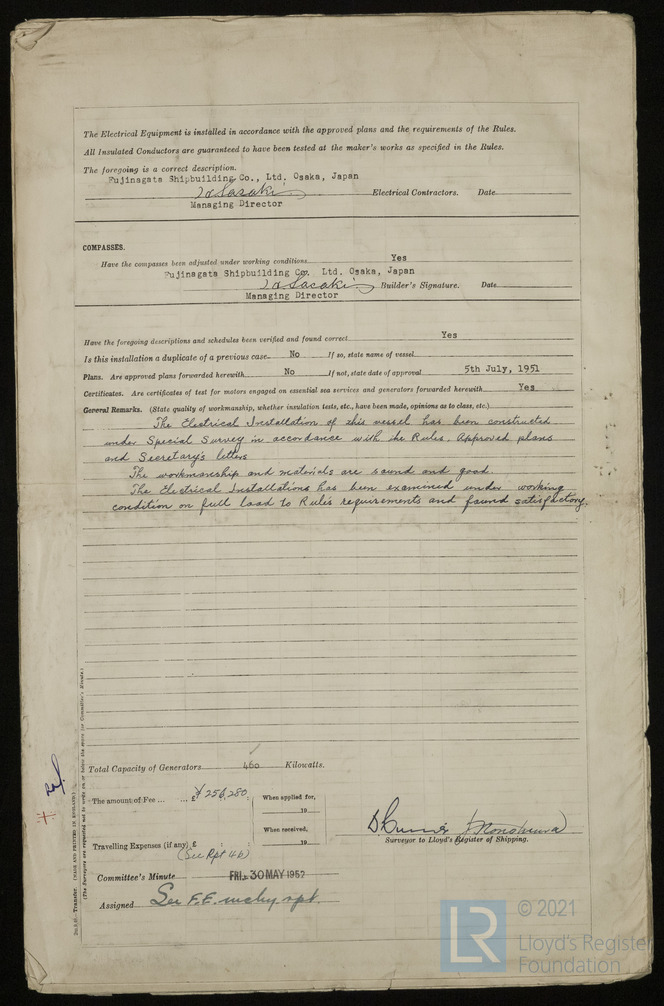 The Electrical Equipment is installed in accordance with the approved plans and the requirements of the Rules.
All Insulated Conductors are guaranteed to have been tested at the maker's works as specified in the Rules.
The foregoing is a correct description.
Fujinagata Shipbuilding Co., Ltd. Osaka, Japan
Sasaki Electrical Contractors. Date
Managing Director
COMPASSES.
Have the compasses been adjusted under working conditions Yes
Fujinagata Shipbuilding Co. Ltd. Osaka, Japan
Sasaki Builder's Signature. Date
Managing Director
Have the foregoing descriptions and schedules been verified and found correct Yes
Is this installation a duplicate of a previous case No If so, state name of vessel
Plans. Are approved plans forwarded herewith No If not, state date of approval 5th July, 1951
Certificates. Are certificates of test for motors engaged on essential sea services and generators forwarded herewith Yes
General Remarks. (State quality of workmanship, whether insulation tests, etc., have been made, opinions as to class, etc.)
The Electrical Installation of this vessel has been constructed
under Special Survey in accordance with the Rules. Approved plans
and Secretary's letters
The workmanship and materials are sound and good.
The Electrical Installations has been examined under working
condition on full load to Rules requirements and found satisfactory.
Total Capacity of Generators 460 Kilowatts.
The amount of Fee ... ... £ ¥256,280. When applied for,
19
When received,
Travelling Expenses (if any) £ : : 19
(See Rpt 4b)
Surveyor to Lloyd's Register of Shipping.
Committee's Minute FRI. 30 MAY 1952
Assigned See F.E. mchy. rpt.
Transfer (MADE AND PRINTED IN ENGLAND.)
(The Surveyors are requested not to write on or below the space for Committee's Minute.)
© 2021
LR
Lloyd's Register
Foundation